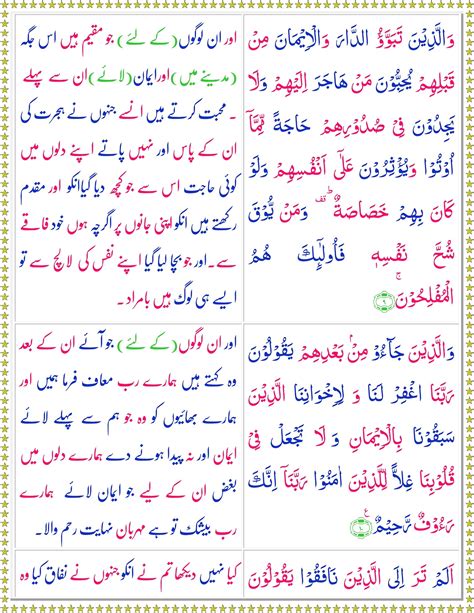 وَالَّذِيْنَ تَبَوَّؤُ الدَّارَ وَالْاِيْمَانَ مِنْ
قَبْلِهِمْ يُحِبُّوْنَ مَنْ هَاجَرَ اِلَيْهِمْ وَلَا
يَجِدُوْنَ فِيْ صُدُوْرِهِمْ حَاجَةً مِّمَّآ
اُوْتُوْا وَيُؤْثِرُوْنَ عَلٰٓى اَنْفُسِهِمْ وَلَوْ
كَانَ بِهِمْ خَصَاصَةٌ ۭ وَمَنْ يُّوْقَ
شُحَّ نَفْسِهٖ فَاُولٰۗىِٕكَ هُمُ
الْمُفْلِحُوْنَ ۚ ۝۹
اور ان لوگوں(کے لئے) جو مقیم ہیں اس جگہ
(مدینے میں) اور ایمان (لائے) ان سے پہلے
۔ محبت کرتے ہیں انسے جنہوں نے ہجرت کی
ان کے پاس اور نہیں پاتے اپنے دلوں میں
کوئی حاجت اس سے جو کچھ دیا گیا انکو اور مقدم
رکھتے ہیں انکو اپنی جانوں پر اگرچہ ہوں خود فاقے
سے۔ اور جو بچا لیا گیا اپنے نفس کی لالچ سے تو
ایسے ہی لوگ ہیں بامراد۔
وَالَّذِيْنَ جَاۗءُوْ مِنْۢ بَعْدِهِمْ يَقُوْلُوْنَ
رَبَّنَا اغْفِرْ لَنَا وَ لِاِخْوَانِنَا الَّذِيْنَ
سَبَقُوْنَا بِالْاِيْمَانِ وَ لَا تَجْعَلْ فِيْ
قُلُوْبِنَا غِلًّا لِّلَّذِيْنَ اٰمَنُوْا رَبَّنَآ اِنَّكَ
رَءُوْفٌ رَّحِيْمٌ ۧ ۝۱۰
اور ان لوگوں(کے لئے) جو آئے ان کے بعد
وہ کہتے ہیں ہمارے رب معاف فرما ہمیں اور
ہمارے بھائیوں کو وہ جو ہم سے پہلے لائے
ایمان اور نہ پیدا ہونے دے ہمارے دلوں میں
بغض ان کے لیے جو ایمان لائے ہمارے
رب بیشک تو ہے مہربان نہایت رحم والا۔
اَلَمْ تَرَ اِلَى الَّذِيْنَ نَافَقُوْا يَقُوْلُوْنَ
کیا نہیں دیکھا تم نے انکو جنہوں نے نفاق کیا وہ